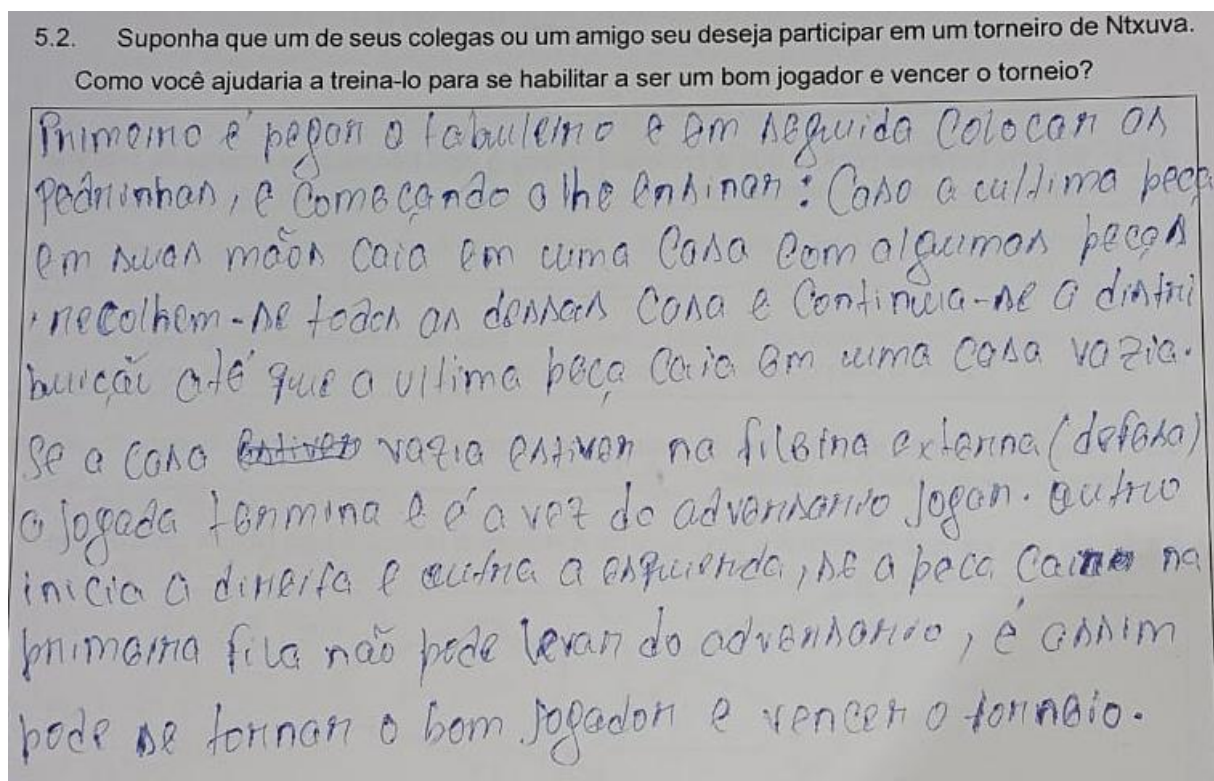 5.2. Suponha que um de seus colegas ou um amigo seu deseja participar em um torneiro de Ntxuva.
Como você ajudaria a treina-lo para se habilitar a ser um bom jogador e vencer o torneio?
Primeiro é pegar o tabuleiro e em seguida Colocar as
pedrinhas, e Começando a lhe ensinar: Caso a cultima peça
em suas mãos caia em uma Casa com algumas peças
recolhem-se todas as dessas Casa e Continuia-se a distri
buição até que a ultima peça Caia em uma casa vazia.
Se a casa vazia estiver na fileira externa (defesa)
a jogada termina e é a vez do adversario Jogar. Outro
inicia a direita e outra a esquerda, se a peca Cair na
primeira fila não pode levar do adversario, é assim
pode se tornar o bom Jogador e vencer o torneio.